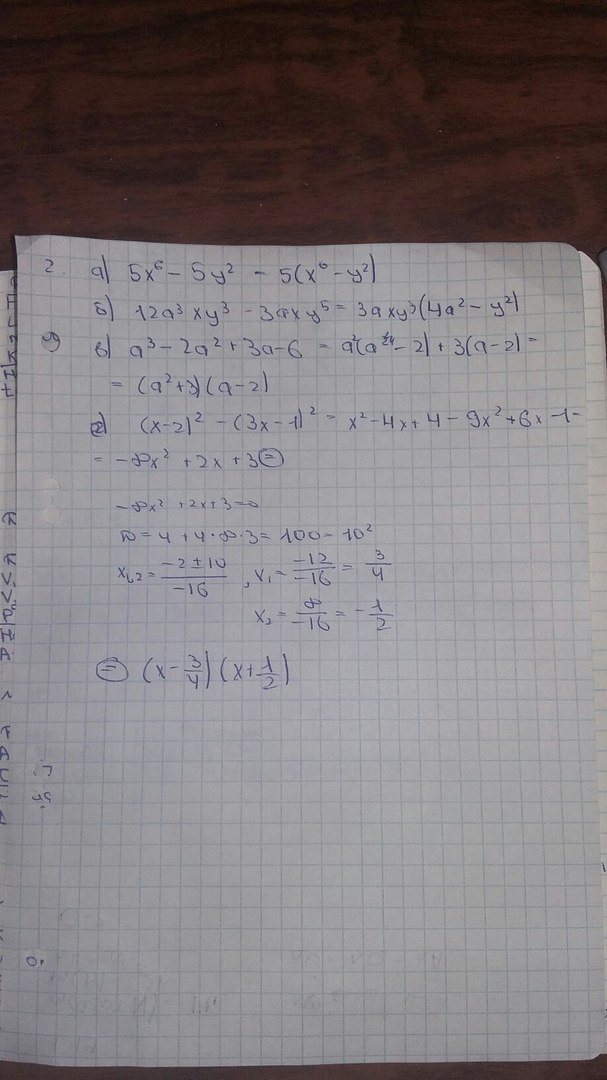 2. а) 5x⁶ - 5y² = 5(x⁶ - y²)
б) 12a³xy³ - 3axy⁵ = 3axy³(4a² - y²)
в) a³ - 2a² + 3a - 6 = a²(a - 2) + 3(a - 2) =
= (a² + 3)(a - 2)
г) (x-2)² - (3x-1)² = x² - 4x + 4 - 9x² + 6x - 1 =
= -8x² + 2x + 3 ⊜
-8x² + 2x + 3 = 0
D = 4 + 4·8·3 = 100 = 10²
x₁,₂ = (-2 ± 10)/-16, x₁ = -12/-16 = 3/4
x₂ = 8/-16 = -1/2
⊜ (x - 3/4)(x + 1/2)